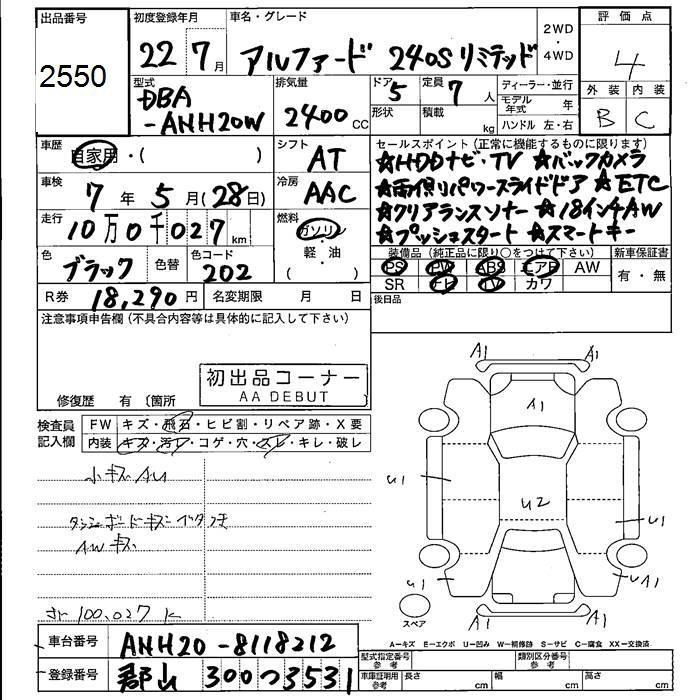 出品番号
2550
初度登録年月
22 7月
車名・グレード
アルファード 240S リミテッド
2WD
・
4WD
評価点
4
外装 内装
B C
型式
DBA
-ANH20W
排気量
2400 CC
ドア
5
形状
定員
7 人
積載
kg
ディーラー・並行
モデル年式 年
ハンドル 左・右
車歴
自家用・( )
シフト
AT
車検
7年5月(28日)
冷房
AAC
走行
10万0千027km
燃料
ガソリン
軽・油
( )
色
ブラック
色替
色コード
202
R券 18,290円
名変期限 月 日
セールスポイント(正常に機能するものに限ります)
☆HDDナビ・TV ☆バックカメラ
☆両側パワースライドドア ☆ETC
☆クリアランスソナー ☆18インチAW
☆プッシュスタート ☆スマートキー
装備品(純正品に限り○をつけて下さい)
PS PW ABS エアB AW
SR ナビ TV カワ
新車保証書
有・無
後日品
注意事項申告欄(不具合内容等は具体的に記入して下さい)
初出品コーナー
AA DEBUT
修復歴 有 〔箇所
検査員
記入欄
FW キズ・飛石・ヒビ割・リペア跡・X要
内装 キズ・汚レ・コゲ・穴・スレ・キレ・破レ
小キズ AU
ダッシュボードキズ ベタつき
AWキズ
100,027 K
A1
A1
A1
U1
U2
U1
U1
UA1
A1
スペア
A1
A－キズ E－エクボ U－凹み W－補修跡 S－サビ C－腐食 XX－交換済
車台番号 ANH20-8118212
登録番号 郡山 300 つ 3531
型式指定番号
参考
類別区分番号
参考
車庫証明用
参考
長さ cm
幅 cm
高さ cm